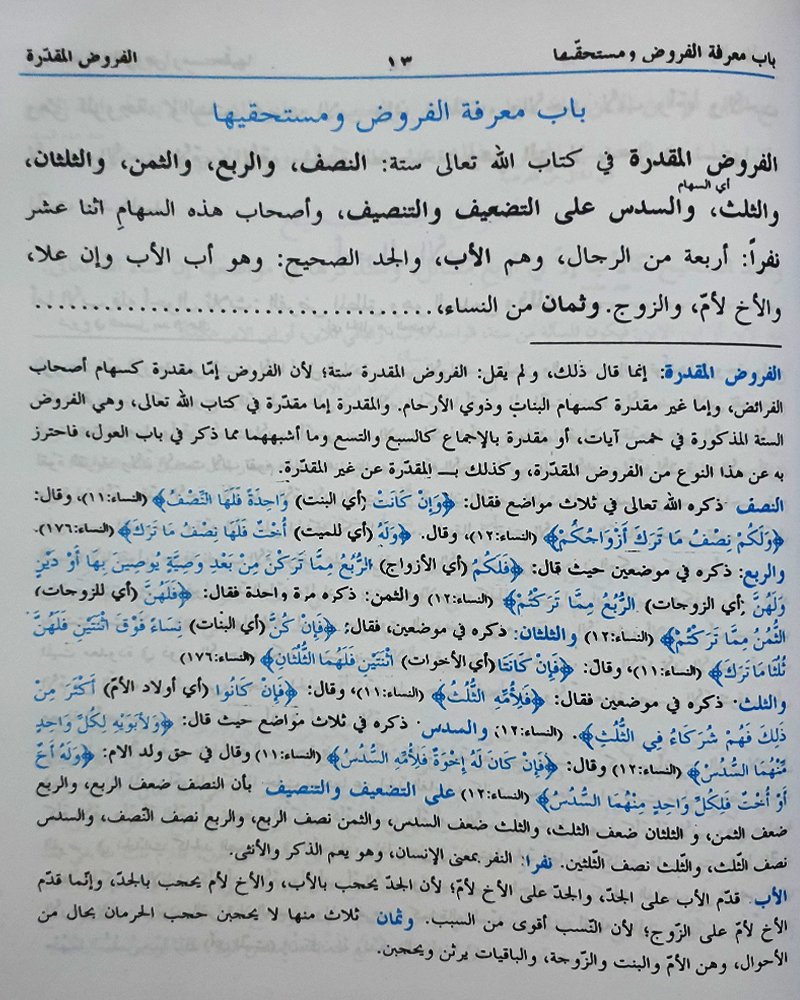 باب معرفة الفروض ومستحقّيها ١٣ الفروض المقدّرة
باب معرفة الفروض ومستحقيها
الفروض المقدرة في كتاب الله تعالى ستة: النصف، والربع، والثمن، والثلثان،
أي السهام
والثلث، والسدس على التضعيف والتنصيف، وأصحاب هذه السهامِ اثنا عشر
نفراً: أربعة من الرجال، وهم الأب، والجد الصحيح: وهو أب الأب وإن علا،
والأخ لأمّ، والزوج. وثمان من النساء،..................................
الفروض المقدرة: إنما قال ذلك، ولم يقل: الفروض المقدرة ستة؛ لأن الفروض إمّا مقدرة كسهام أصحاب
الفرائض، وإما غير مقدرة كسهام البنات وذوي الأرحام. والمقدرة إما مقدّرة في كتاب الله تعالى، وهي الفروض
الستة المذكورة في خمس آيات، أو مقدرة بالإجماع كالسبع والتسع وما أشبههما مما ذكر في باب العول، فاحترز
به عن هذا النوع من الفروض المقدّرة، وكذلك بـــ المقدّرة عن غير المقدّرة.
النصف ذكره الله تعالى في ثلاث مواضع فقال: ﴿وَإِنْ كَانَتْ (أي البنت) وَاحِدَةً فَلَهَا النِّصْفُ﴾ (النساء:١١)، وقال:
﴿وَلَكُمْ نِصْفُ مَا تَرَكَ أَزْوَاجُكُمْ﴾ (النساء:١٢)، وقال. ﴿وَلَهُ (أي للميت) أُخْتٌ فَلَهَا نِصْفُ مَا تَرَكَ﴾ (النساء:١٧٦).
والربع: ذكره في موضعين حيث قال: ﴿فَلَكُمْ (أي الأزواج) الرُّبُعُ مِمَّا تَرَكْنَ مِنْ بَعْدِ وَصِيَّةٍ يُوصِينَ بِهَا أَوْ دَيْنٍ
وَلَهُنَّ (أي الزوجات) الرُّبُعُ مِمَّا تَرَكْتُمْ﴾ (النساء:١٢) والثمن: ذكره مرة واحدة فقال: ﴿فَلَهُنَّ (أي للزوجات)
الثُّمُنُ مِمَّا تَرَكْتُمْ﴾ (النساء:١٢) والثلثان: ذكره في موضعين، فقال: ﴿فَإِنْ كُنَّ (أي البنات) نِسَاءً فَوْقَ اثْنَتَيْنِ فَلَهُنَّ
ثُلُثَا مَا تَرَكَ﴾ (النساء:١١)، وقال: ﴿فَإِنْ كَانَتَا (أي الأخوات) اثْنَتَيْنِ فَلَهُمَا الثُّلُثَانِ﴾ (النساء:١٧٦)
والثلث: ذكره في موضعين فقال: ﴿فَلِأُمِّهِ الثُّلُثُ﴾ (النساء:١١)، وقال: ﴿فَإِنْ كَانُوا (أي أولاد الأمّ) أَكْثَرَ مِنْ
ذَلِكَ فَهُمْ شُرَكَاءُ فِي الثُّلُثِ﴾. (النساء:١٢) والسدس: ذكره في ثلاث مواضع حيث قال: ﴿وَلِأَبَوَيْهِ لِكُلِّ وَاحِدٍ
مِنْهُمَا السُّدُسُ﴾ (النساء:١٢) وقال: ﴿فَإِنْ كَانَ لَهُ إِخْوَةٌ فَلِأُمِّهِ السُّدُسُ﴾ (النساء:١١) وقال في حق ولد الام: ﴿وَلَهُ أَخٌ
أَوْ أُخْتٌ فَلِكُلِّ وَاحِدٍ مِنْهُمَا السُّدُسُ﴾ (النساء:١٢) على التضعيف والتنصيف بأن النصف ضعف الربع، والربع
ضعف الثمن، و الثلثان ضعف الثلث، والثلث ضعف السدس، والثمن نصف الربع، والربع نصف النّصف، والسدس
نصف الثّلث، والثّلث نصف الثّلثين. نفرا: النفر بمعنى الإنسان، وهو يعم الذكر والأنثى.
الأب. قدّم الأب على الجدّ، والجدّ على الأخ لأمّ؛ لأن الجدّ يحجب بالأب، والأخ لأم يحجب بالجدّ، وإنّما قدّم
الأخ لأمّ على الزّوج؛ لأن النّسب أقوى من السبب. وثمان ثلاث منها لا يحجبن حجب الحرمان بحال من
الأحوال، وهن الأمّ والبنت والزّوجة، والباقيات يرثن ويحجبن.